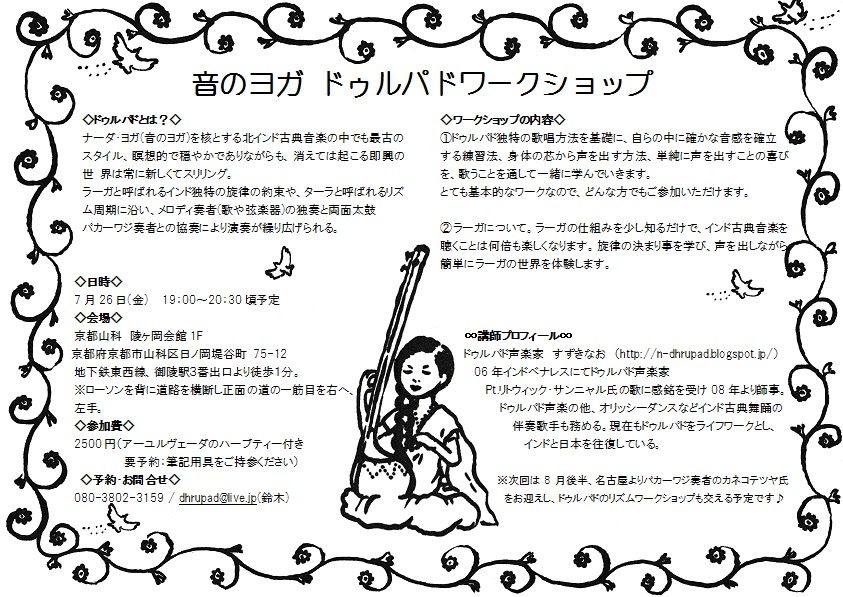 音のヨガ ドゥルパドワークショップ
◇ドゥルパドとは？◇
ナーダ・ヨガ(音のヨガ)を核とする北インド古典音楽の中でも最古の
スタイル、瞑想的で穏やかでありながらも、消えては起こる即興の
世 界は常に新しくてスリリング。
ラーガと呼ばれるインド独特の旋律の約束や、ターラと呼ばれるリズ
ム周期に沿い、メロディ奏者(歌や弦楽器)の独奏と両面太鼓
パカーワジ奏者との協奏により演奏が繰り広げられる。
◇日時◇
7月26日(金) 19:00～20:30頃予定
◇会場◇
京都山科 陵ヶ岡会館 1F
京都府京都市山科区日ノ岡堤谷町 75-12
地下鉄東西線、御陵駅3番出口より徒歩1分。
※ローソンを背に道路を横断し正面の道の一筋目を右へ、
左手。
◇参加費◇
2500円(アーユルヴェーダのハーブティー付き
要予約：筆記用具をご持参ください)
◇予約・お問合せ◇
080-3802-3159 / dhrupad@live.jp(鈴木)
◇ワークショップの内容◇
①ドゥルパド独特の歌唱方法を基礎に、自らの中に確かな音感を確立
する練習法、身体の芯から声を出す方法、単純に声を出すことの喜び
を、歌うことを通して一緒に学んでいきます。
とても基本的なワークなので、どんな方でもご参加いただけます。
②ラーガについて。ラーガの仕組みを少し知るだけで、インド古典音楽を
聴くことは何倍も楽しくなります。旋律の決まり事を学び、声を出しながら
簡単にラーガの世界を体験します。
∞講師プロフィール∞
ドゥルパド声楽家 すずきなお (http://n-dhrupad.blogspot.jp/)
06年インドベナレスにてドゥルパド声楽家
Pt.リトウィック・サンニャル氏の歌に感銘を受け 08年より師事。
ドゥルパド声楽の他、オリッシーダンスなどインド古典舞踊の
伴奏歌手も務める。現在もドゥルパドをライフワークとし、
インドと日本を往復している。
※次回は 8 月後半、名古屋よりパカーワジ奏者のカネコテツヤ氏
をお迎えし、ドゥルパドのリズムワークショップも交える予定です♪